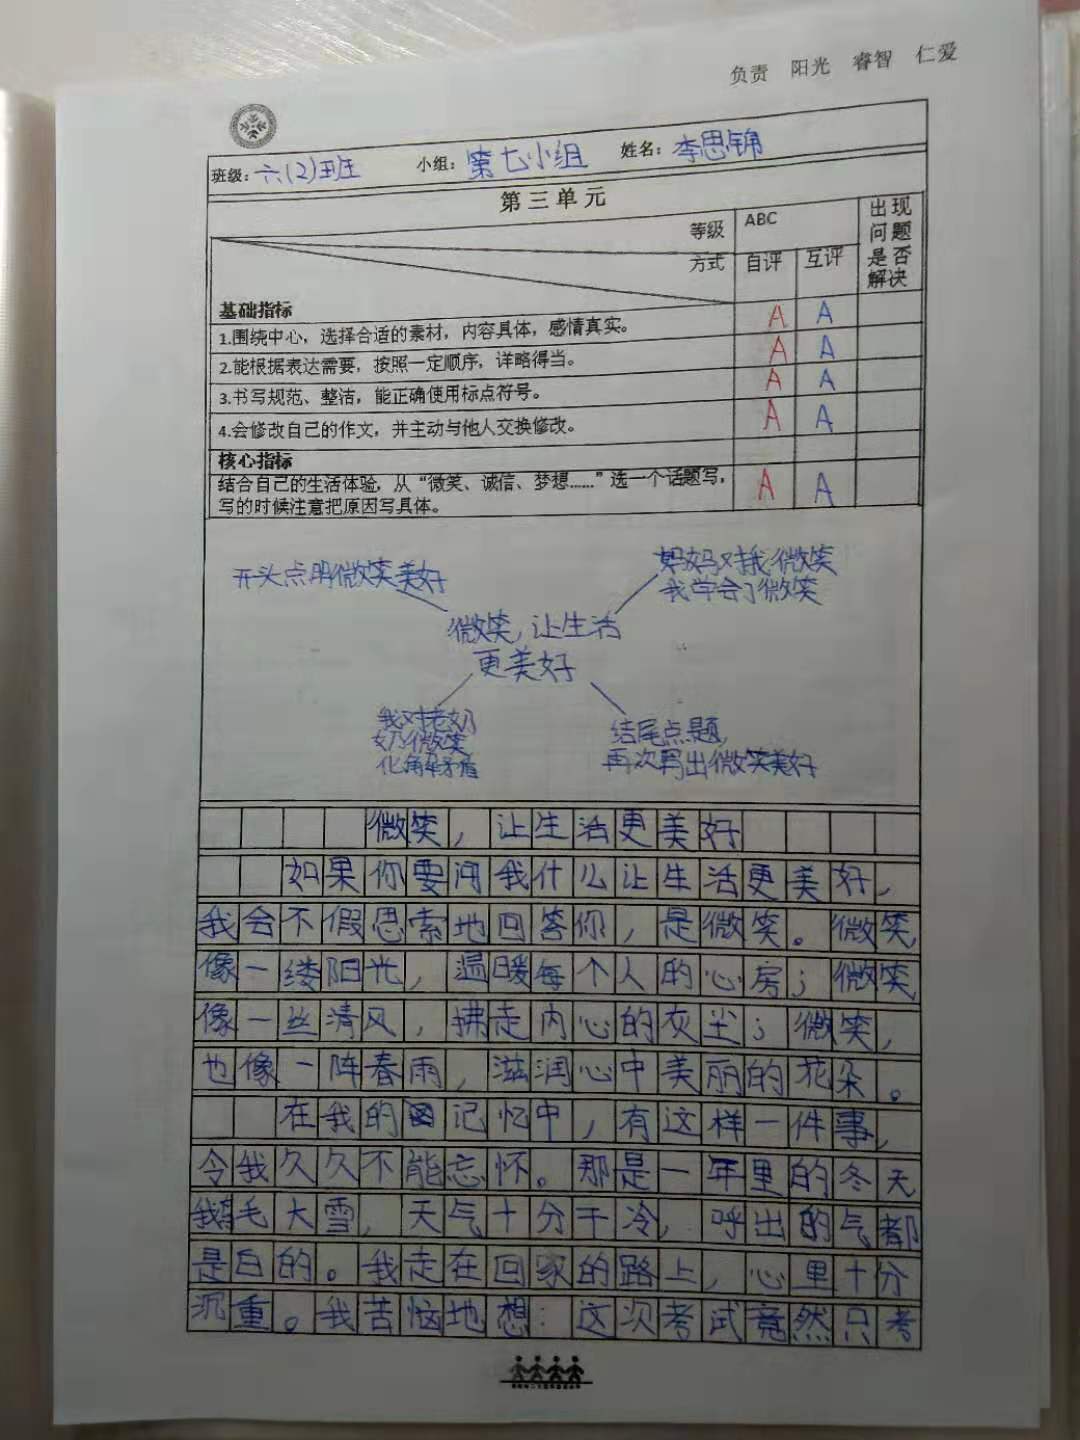 负责 阳光 睿智 仁爱
班级：六(2)班 小组：第七小组 姓名：李思锦
第三单元
等级 ABC 出现问题是否解决
方式 自评 互评
基础指标
1.围绕中心，选择合适的素材，内容具体，感情真实。 A A
2.能根据表达需要，按照一定顺序，详略得当。 A A
3.书写规范、整洁，能正确使用标点符号。 A A
4.会修改自己的作文，并主动与他人交换修改。 A A
核心指标
结合自己的生活体验，从“微笑、诚信、梦想……”选一个话题写，
写的时候注意把原因写具体。 A A
开头点明微笑美好
妈妈对我微笑
我学会了微笑
微笑，让生活
更美好
我对老奶
奶微笑
化解矛盾
结尾点题，
再次写出微笑美好
微笑，让生活更美好
如果你要问我什么让生活更美好，
我会不假思索地回答你，是微笑。微笑，
像一缕阳光，温暖每个人的心房；微笑
像一丝清风，拂走内心的灰尘；微笑，
也像一阵春雨，滋润心中美丽的花朵。
在我的记忆中，有这样一件事，
令我久久不能忘怀。那是一年里的冬天
鹅毛大雪，天气十分干冷，呼出的气都
是白的。我走在回家的路上，心里十分
沉重。我苦恼地想：这次考试竟然只考